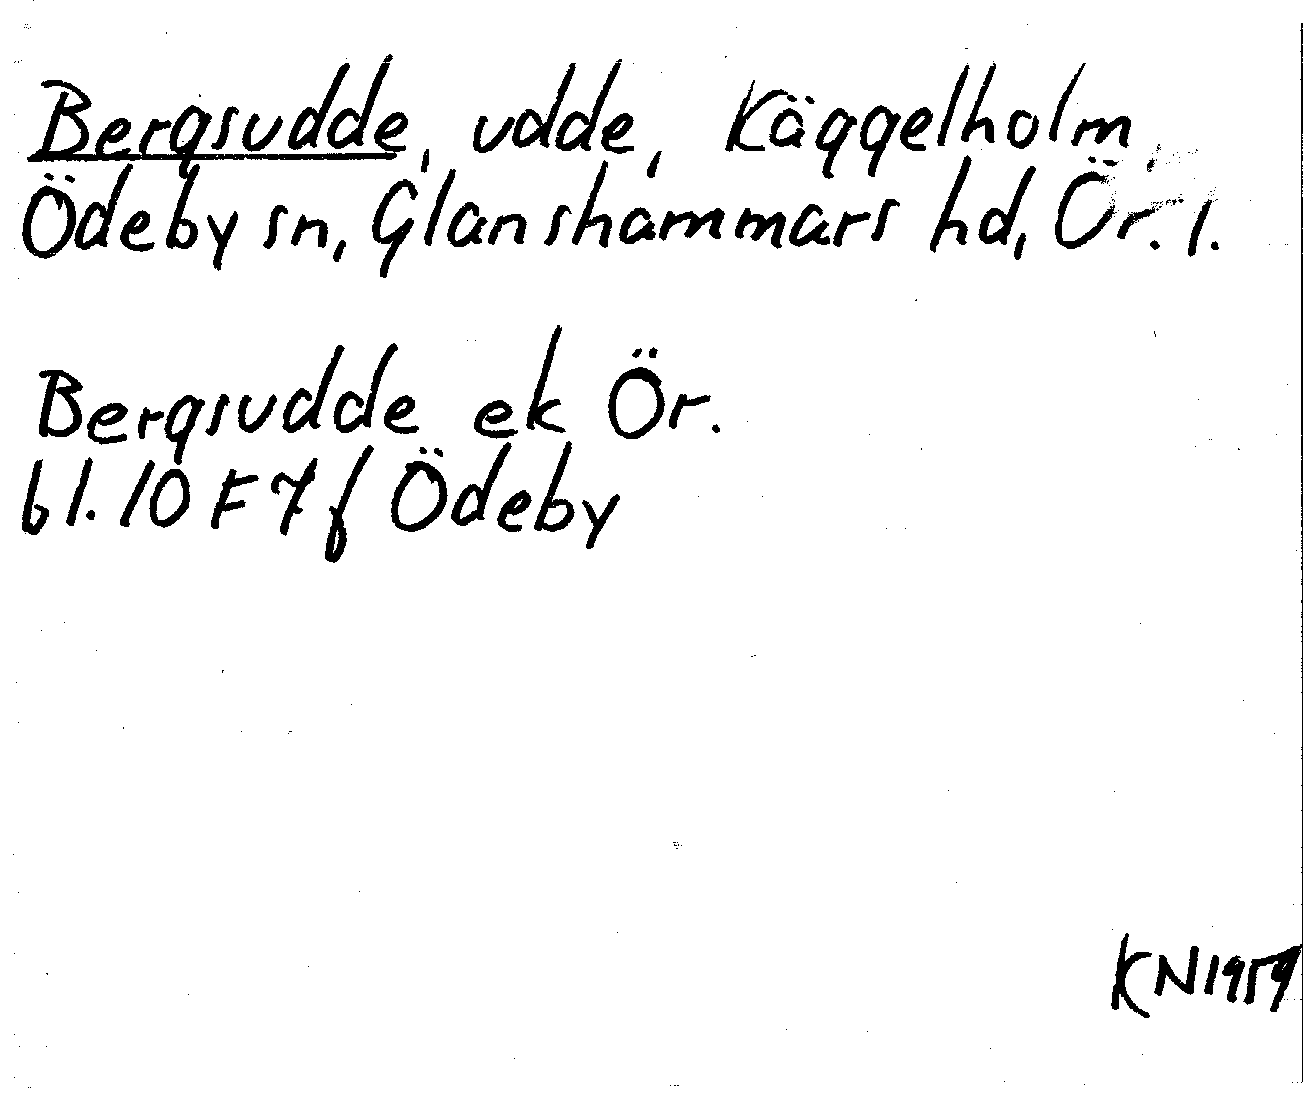 Bergsudde, udde, Käggelholm,
Ödeby sn, Glanshammars hd, Ör. l.
Bergsudde ek Ör.
bl. 10 F 7 f Ödeby
KN 1959